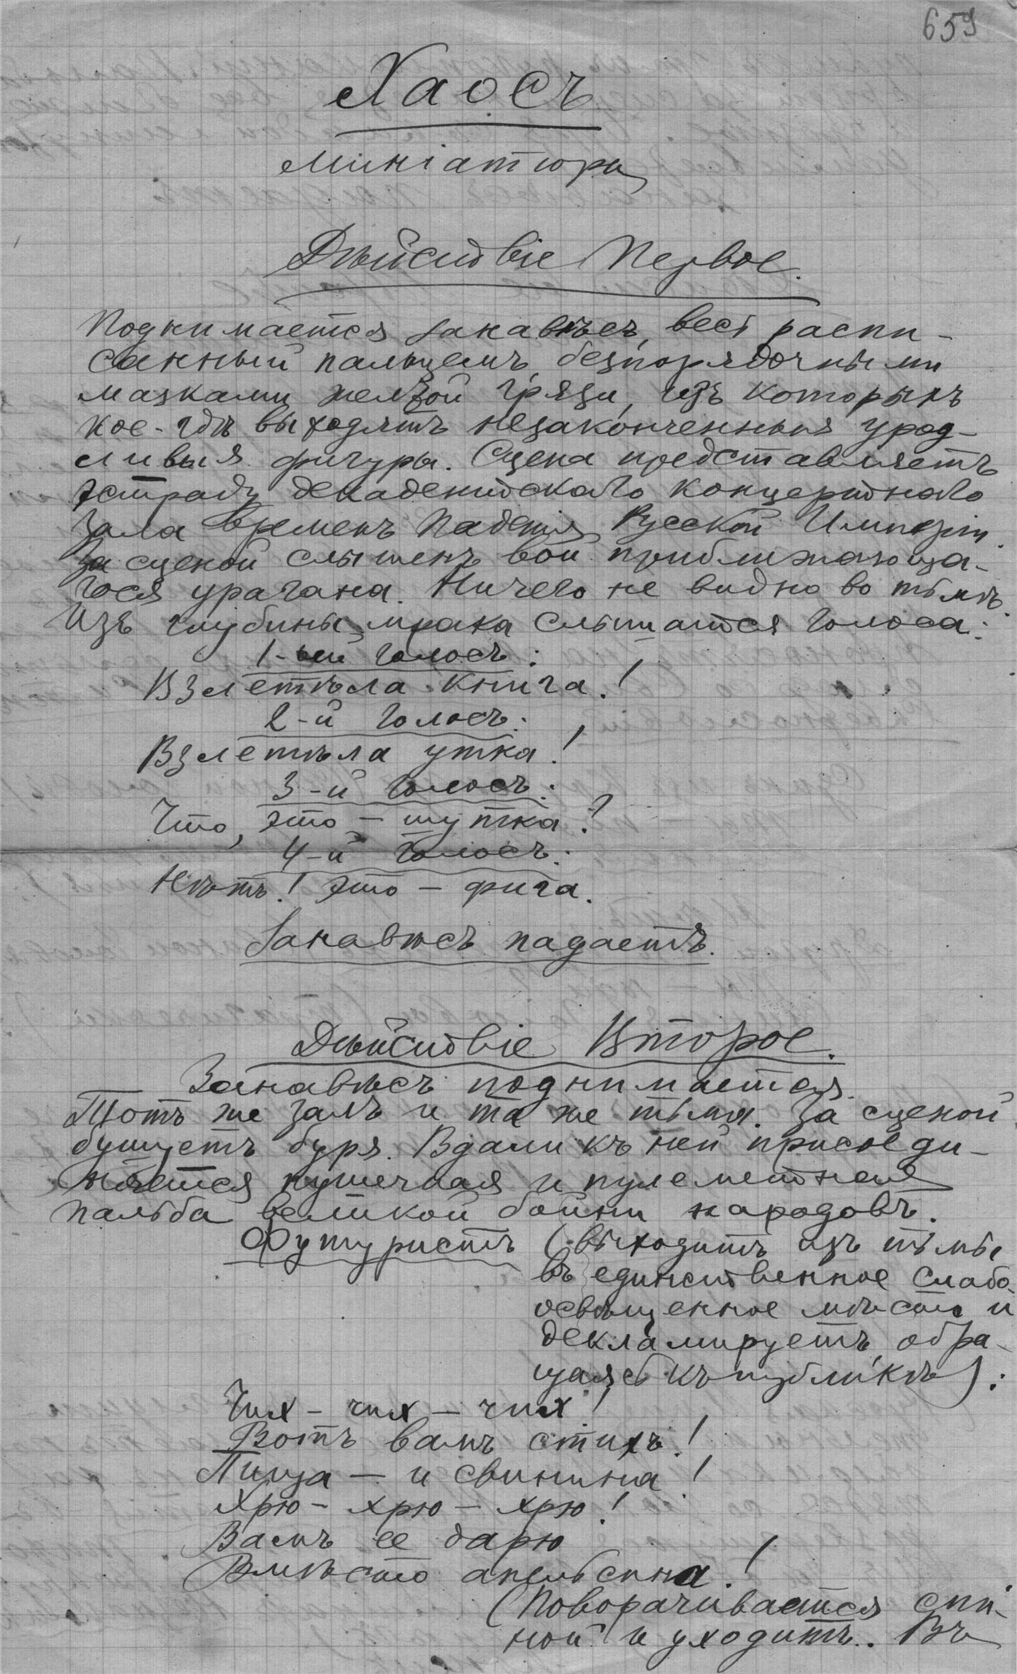 659
Хаосъ
Миніатюра
Дѣйствіе Первое.
Поднимается занавѣсъ, весь распи-
санный пальцемъ, безпорядочными
мазками желтой грязи, изъ которыхъ
кое-гдѣ выходятъ незаконченныя урод-
ливыя фигуры. Сцена представляетъ
эстраду декадентскаго концертнаго
зала временъ паденія Русской Имперіи.
За сценой слышенъ вой приближающа-
гося урагана. Ничего не видно во тьмѣ.
Изъ глубины мрака слышатся голоса:
1-ый голосъ:
Взлетѣла книга!
2-й голосъ:
Взлетѣла утка!
3-й голосъ:
Что, это – шутка?
4-й голосъ:
Нѣтъ! это – фига.
Занавѣсъ падаетъ.
Дѣйствіе Второе.
Занавѣсъ поднимается.
Тотъ же залъ и та же тьма. За сценой
бушуетъ буря. Вдали къ ней присоеди-
няется пушечная и пулеметная
пальба великой бойни народовъ.
Футуристъ (выходитъ изъ тьмы
въ единственное слабо
освѣщенное мѣсто и
декламируетъ, обра-
щаясь къ публикѣ):
Чих – чих – чих!
Вотъ вамъ стихъ!
Пища – и свинина!
Хрю – хрю – хрю!
Вамъ ее дарю
Вмѣсто апельсина!
(Поворачивается спи-
ной и уходитъ. Въ